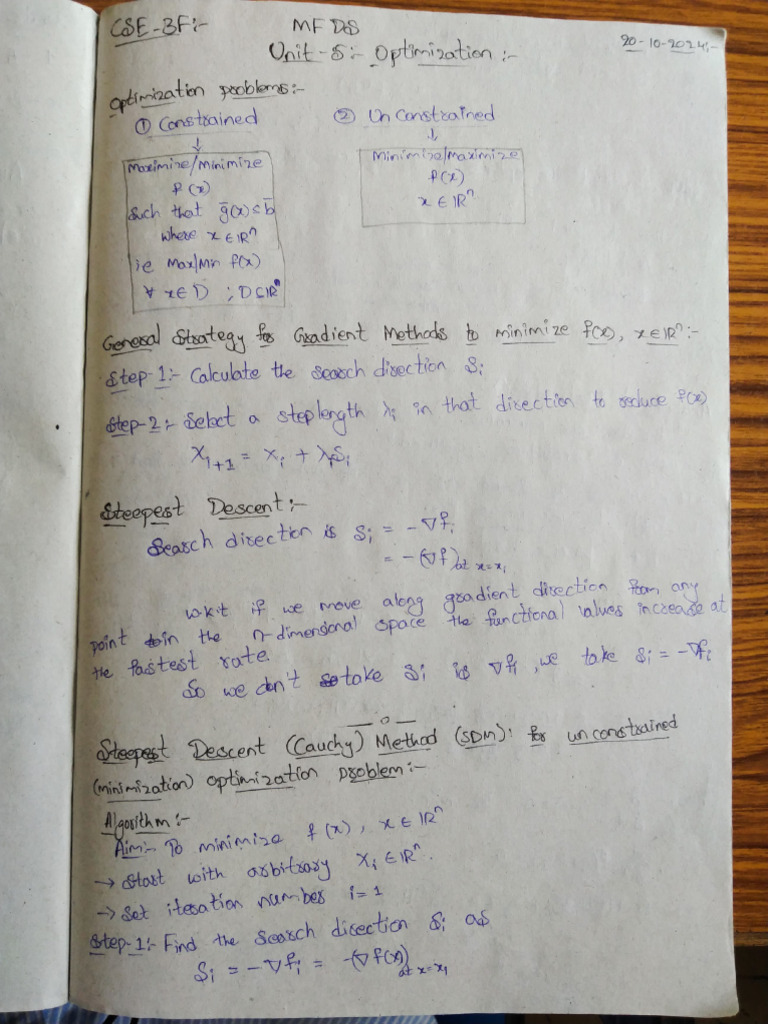 CSE-BF:-
MFDS
20-10-2024:-
Unit-5:- Optimization:-
Optimization problems:-
① Constrained
② Un Constrained
Maximize/Minimize
f(x)
Such that g̅(x) ≤ b̅
where x ∈ IRⁿ
ie Max/Min f(x)
∀ x ∈ D ; D ⊆ IRⁿ
Minimize/maximize
f(x)
x ∈ IRⁿ
General Strategy for Gradient Methods to minimize f(x), x ∈ IRⁿ:-
Step-1:- Calculate the search direction Sᵢ
Step-2:- Select a steplength λᵢ in that direction to reduce f(x)
Xᵢ₊₁ = xᵢ + λᵢSᵢ
Steepest Descent:-
Search direction is Sᵢ = -∇fᵢ
= -(∇f)at x=xᵢ
w.k.t if we move along gradient direction from any
point in the n-dimensional space the functional values increase at
the fastest rate.
So we don't take Sᵢ is ∇fᵢ, we take Sᵢ = -∇fᵢ
—o—
Steepest Descent (Cauchy) Method (SDM): for unconstrained
(minimization) optimization problem:-
Algorithm:-
Aim:- To minimize f(x), x ∈ IRⁿ
→ Start with arbitrary Xᵢ ∈ IRⁿ.
→ Set iteration number i=1
Step-1:- Find the search direction Sᵢ as
Sᵢ = -∇fᵢ = -(∇f(x))at x=x₁